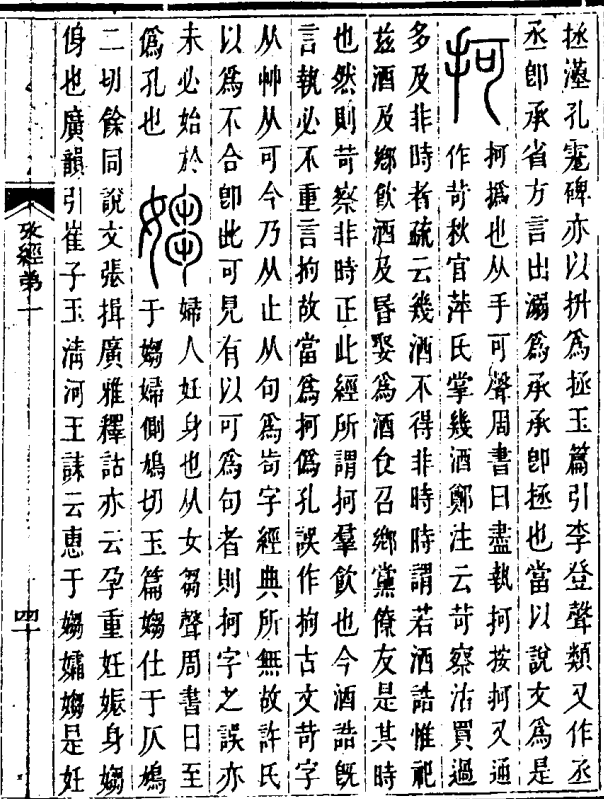 拯蓫孔宠碑亦以拼爲拯玉篇引李登聲類又作丞
丞卽承省方言出溺爲承承卽拯也當以說文爲是
抲 抲撝也从手可聲周書曰盡執抲按抲又通
作苛秋官萍氏掌幾酒鄭注云苛察沽買過
多及非時者疏云幾酒不得非時時謂若酒誥惟祀
兹酒及鄉飲酒及昏娶爲酒食召鄉黨僚友是其時
也然則苛察非時正此經所謂抲羣飲也今酒誥旣
言執必不重言拘故當爲抲僞孔誤作拘古文苛字
从艸从可今乃从止从句爲岢字經典所無故許氏
以爲不合卽此可見有以可爲句者則抲字之誤亦
未必始於
爲孔也 媰 婦人妊身也从女芻聲周書曰至
于媰婦側鳩切玉篇媰仕于仄鳩
二切餘同說文張揖廣雅釋詁亦云孕重妊娠身媰
㑗也廣韻引崔子玉淸河王誄云惠于媰孀媰是妊
攷經弟一
四十